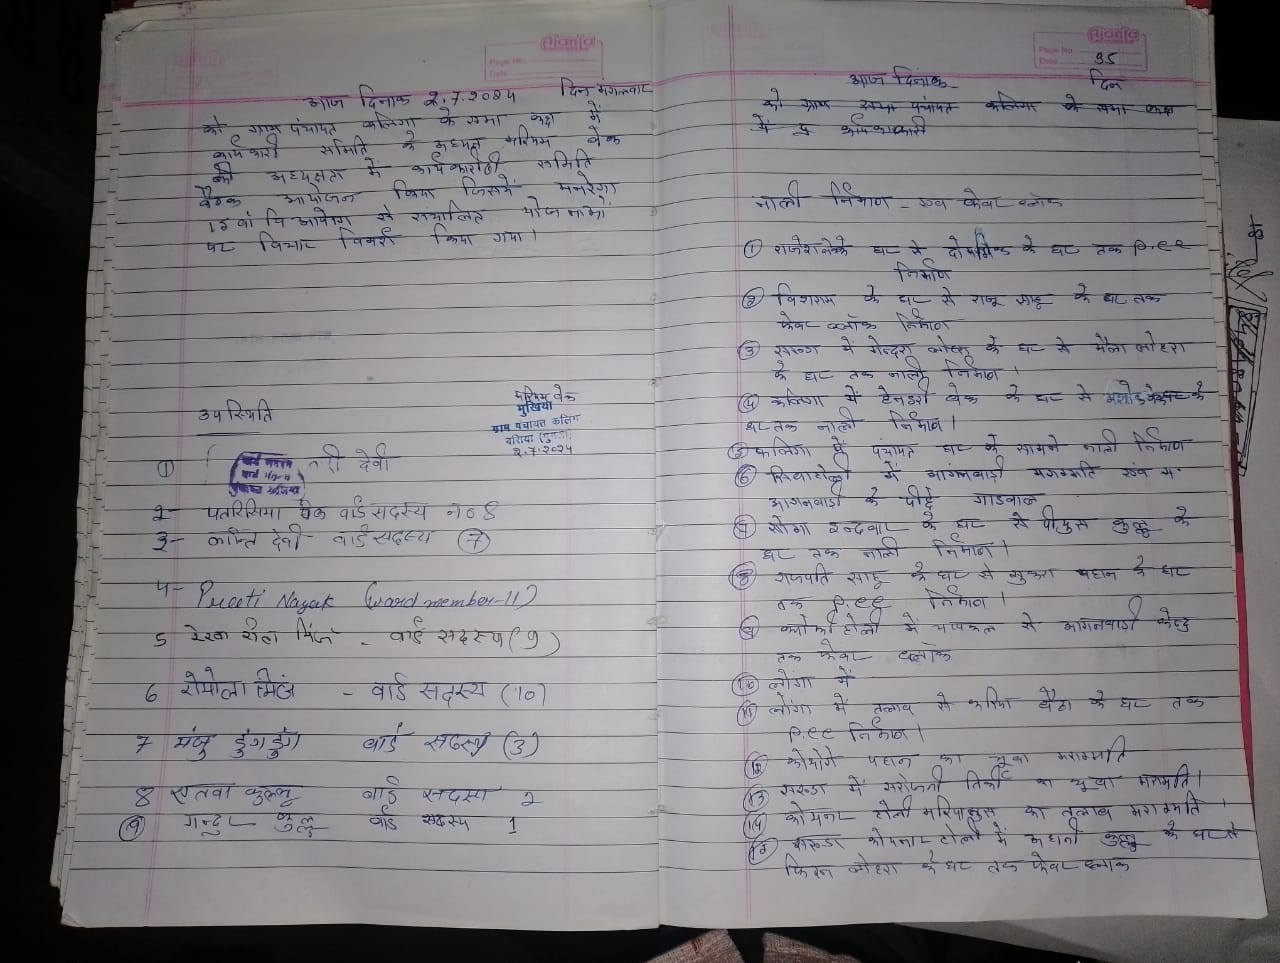 आज दिनांक 2.7.2024 दिन मंगलवार
को ग्राम पंचायत कलिगा के सभा कक्ष में
कार्यकारी समिति के अध्यक्ष मरियम केक
की अध्यक्षता में कार्यकारीणी समिति
बैठक आयोजन किया जिसमें मनरेगा
15 वां वि आयोग से संचालित योजनाओं
पर विचार विमर्श किया गया।
मरियम केक
मुखिया
ग्राम पंचायत कलिगा
बसिया (गुमला)
2.7.2024
उपस्थिति
① देवी
2- पतरिसिया केक वार्ड सदस्य न० 8
3- कान्ति देवी वार्ड सदस्य ⑦
4- Preeti Nayak (ward member-11)
5 रेखा रीता मिंज - वार्ड सदस्य (9)
6 रोमोला मिंज - वार्ड सदस्य (10)
7 मंजु डुंगडुंग वार्ड सदस्य (3)
8 एतवा कुल्लू वार्ड सदस्य 2
⑨ कुल्लू वार्ड सदस्य 1
Ajanta
Page No.
Date
Ajanta
Page No. 95
Date
आज दिनांक दिन
को ग्राम सभा पंचायत कलिगा के सभा कक्ष
में कार्यकारी
नाली निर्माण - एवं फेवर ब्लॉक
① के घर से के घर तक P.C.C
निर्माण
② विशराम के घर से राजू साहू के घर तक
फेवर ब्लॉक निर्माण
③ में गेन्दरा लोहरा के घर से मैला लोहरा
के घर तक नाली निर्माण।
④ कलिगा में हेनडरी केक के घर से अशोक के
घर तक नाली निर्माण।
⑤ कलिगा में पंचायत घर के सामने नाली निर्माण
⑥ में आंगनवाडी मरम्मति एवं
आगनवाडी के पीछे गाडवाल
⑦ इन्दवार के घर से पीयुस कुल्लू के
घर तक नाली निर्माण।
⑧ राजपति साहू के घर से सुकरा पहान के घर
तक P.C.C निर्माण।
⑨ टोली में चापाकल से आंगनवाडी केन्द्र
तक फेवर ब्लॉक
⑩ लोंगा में
⑪ लोंगा में तलाब से बैठा के घर तक
P.C.C निर्माण।
⑫ पहान का मरम्मति
13 में सरोजनी तिर्की का मरम्मति।
14 टोली का तलाब मरम्मति।
15 टोली में कुल्लू के घर से
किरन लोहरा के घर तक फेवर ब्लाक